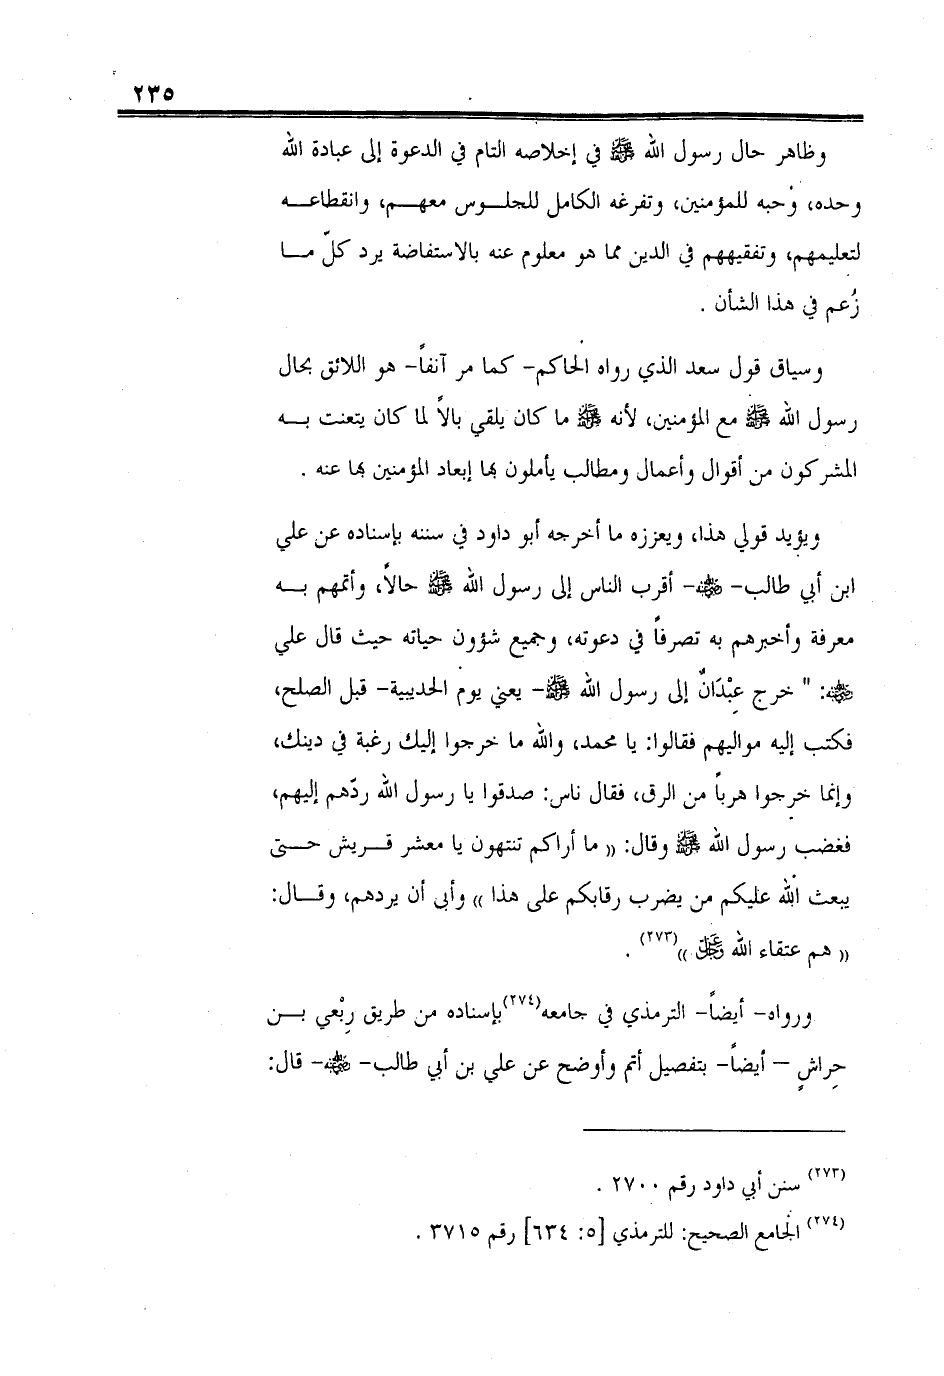 ٢٣٥
وظاهر حال رسول الله ﷺ في إخلاصه التام في الدعوة إلى عبادة الله
وحده، وُحبه للمؤمنين، وتفرغه الكامل للجلـوس معهـم، وانقطاعـه
لتعليمهم، وتفقيههم في الدين مما هو معلوم عنه بالاستفاضة يرد كلّ مـا
زُعم في هذا الشأن .
وسياق قول سعد الذي رواه الحاكم- كما مر آنفاً- هو اللائق بحال
رسول الله ﷺ مع المؤمنين، لأنه ﷺ ما كان يلقي بالاً لما كان يتعنت بـه
المشركون من أقوال وأعمال ومطالب يأملون بها إبعاد المؤمنين بها عنه .
ويؤيد قولي هذا، ويعززه ما أخرجه أبو داود في سننه بإسناده عن علي
ابن أبي طالب- رضي الله عنه- أقرب الناس إلى رسول الله ﷺ حالاً، وأتمهم بـه
معرفة وأخبرهم به تصرفاً في دعوته، وجميع شؤون حياته حيث قال علي
رضي الله عنه: " خرج عِبْدَانٌ إلى رسول الله ﷺ- يعني يوم الحديبية- قبل الصلح،
فكتب إليه مواليهم فقالوا: يا محمد، والله ما خرجوا إليك رغبة في دينك،
وإنما خرجوا هرباً من الرق، فقال ناس: صدقوا يا رسول الله ردّهم إليهم،
فغضب رسول الله ﷺ وقال: (( ما أراكم تنتهون يا معشر قـريش حـتى
يبعث الله عليكم من يضرب رقابكم على هذا )) وأبى أن يردهم، وقـال:
(( هم عتقاء الله عز وجل ))(٢٧٣) .
ورواه- أيضاً- الترمذي في جامعه(٢٧٤)بإسناده من طريق رِبْعي بـن
حِراشٍ - أيضاً- بتفصيل أتم وأوضح عن علي بن أبي طالب- رضي الله عنه- قال:
(٢٧٣) سنن أبي داود رقم ٢٧٠٠ .
(٢٧٤) الجامع الصحيح: للترمذي [٥: ٦٣٤] رقم ٣٧١٥ .